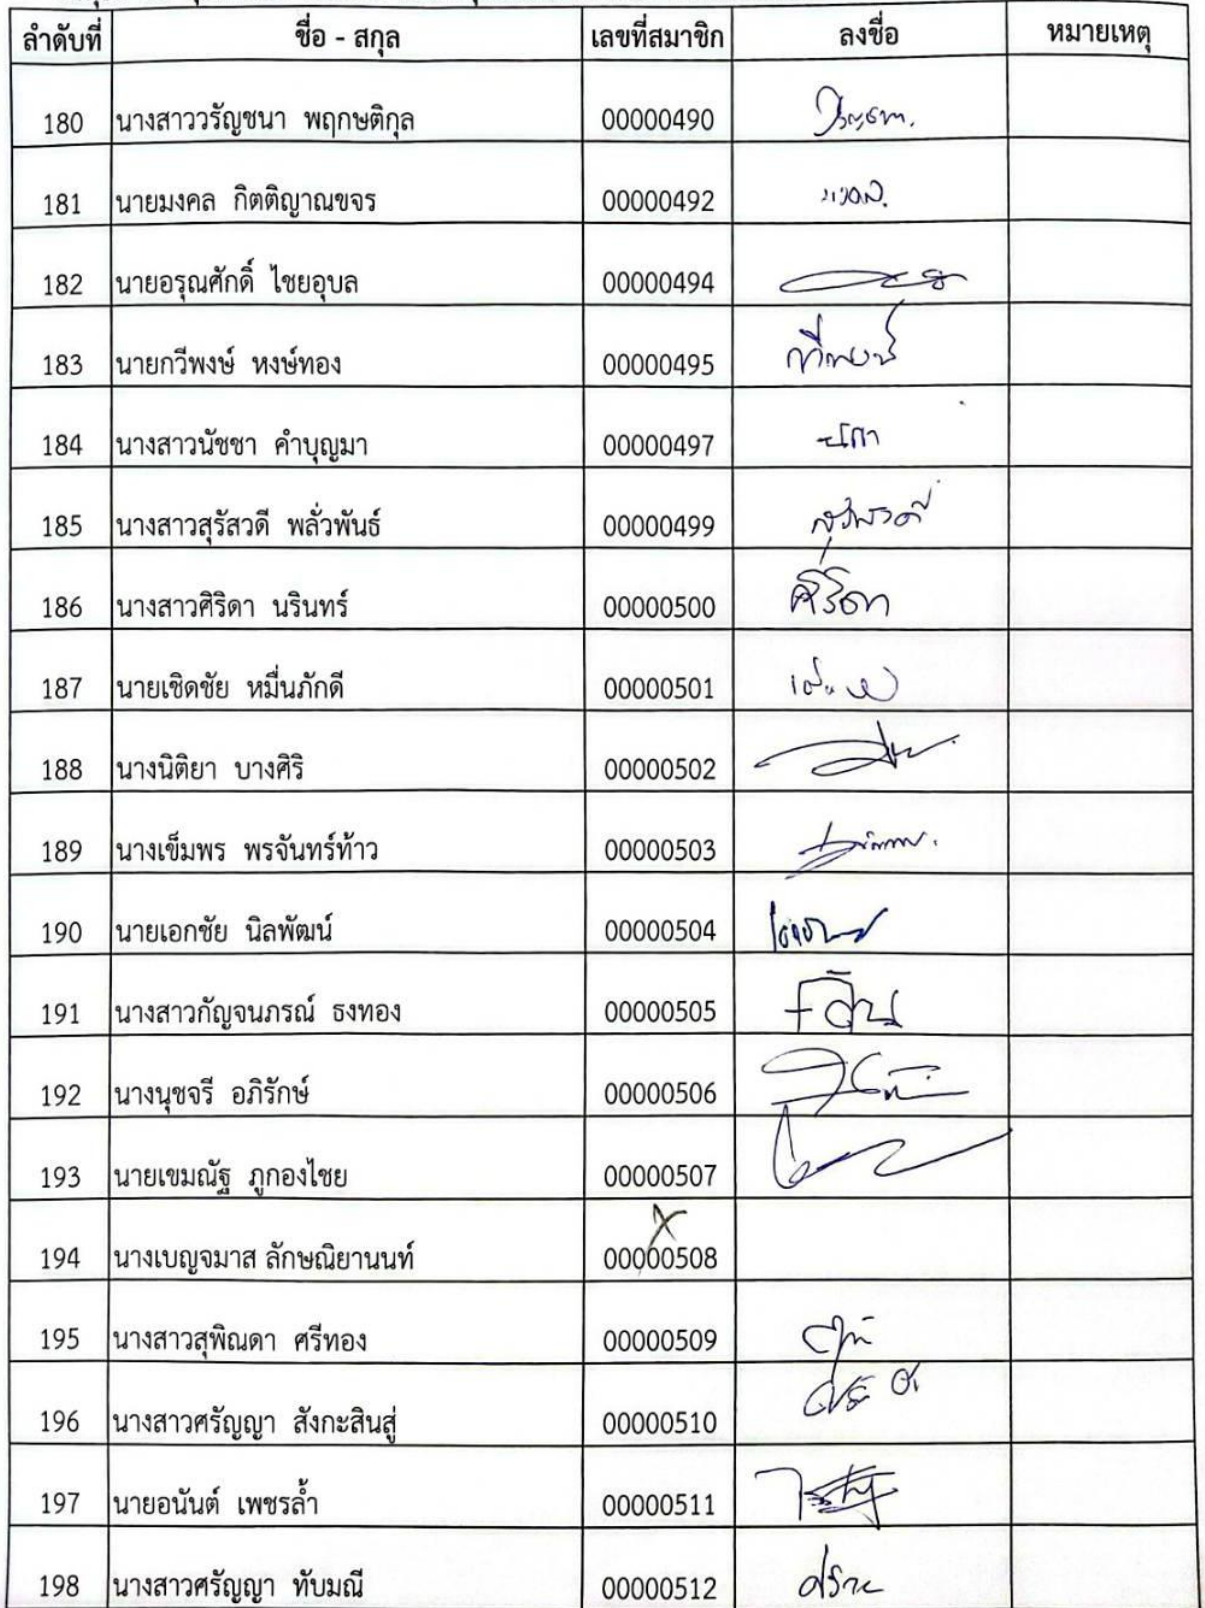 ลำดับที่ ชื่อ - สกุล เลขที่สมาชิก ลงชื่อ หมายเหตุ
180 นางสาววรัญชนา พฤกษติกุล 00000490
181 นายมงคล กิตติญาณขจร 00000492 มงคล.
182 นายอรุณศักดิ์ ไชยอุบล 00000494
183 นายกวีพงษ์ หงษ์ทอง 00000495 กวีพงษ์
184 นางสาวนัชชา คำบุญมา 00000497
185 นางสาวสุรัสวดี พลั่วพันธ์ 00000499 สุรัสวดี
186 นางสาวศิริดา นรินทร์ 00000500 ศิริดา
187 นายเชิดชัย หมื่นภักดี 00000501
188 นางนิติยา บางศิริ 00000502
189 นางเข็มพร พรจันทร์ท้าว 00000503
190 นายเอกชัย นิลพัฒน์ 00000504
191 นางสาวกัญจนภรณ์ ธงทอง 00000505
192 นางนุชจรี อภิรักษ์ 00000506
193 นายเขมณัฐ ภูกองไชย 00000507
194 นางเบญจมาส ลักษณิยานนท์ 00000508
195 นางสาวสุพิณดา ศรีทอง 00000509
196 นางสาวศรัญญา สังกะสินสู่ 00000510
197 นายอนันต์ เพชรล้ำ 00000511
198 นางสาวศรัญญา ทับมณี 00000512